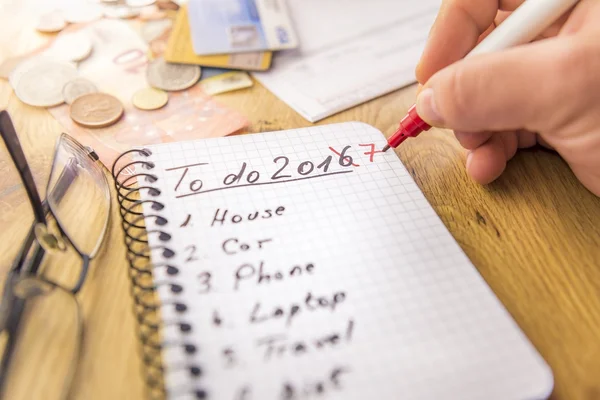 To do 2016 7
1. House
2. Car
3. Phone
4. Laptop
5. Travel